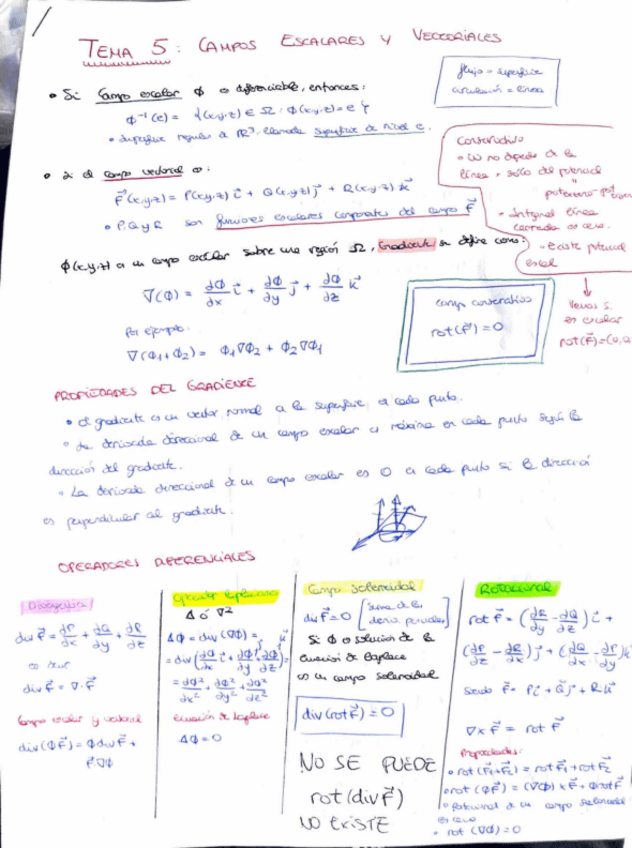 TEMA 5: CAMPOS ESCALARES Y VECTORIALES
flujo = superficie
circulación = línea
• Si campo escalar ϕ es diferenciable, entonces:
ϕ⁻¹(c) = {(x,y,z) ∈ Ω: ϕ(x,y,z) = c}
• superficie regular de ℝ³ llamada superficie de nivel c.
Conservativo
• W no depende de la
línea = sólo del potencial
• Integral línea
cerrada es cero.
• existe potencial
escal
• Si el campo vectorial es:
F⃗(x,y,z) = P(x,y,z) i⃗ + Q(x,y,z) j⃗ + R(x,y,z) k⃗
• P, Q y R son funciones escalares componentes del campo F⃗
ϕ(x,y,z) es un campo escalar sobre una región Ω, Gradiente se define como:
∇(ϕ) = dϕ/dx i⃗ + dϕ/dy j⃗ + dϕ/dz k⃗
campo conservativo
rot(F⃗) = 0
Vemos si
es escalar
rot(F⃗) = (0,0,
Por ejemplo:
∇(ϕ₁+ϕ₂) = ϕ₁∇ϕ₂ + ϕ₂∇ϕ₁
PROPIEDADES DEL GRADIENTE
• el gradiente es un vector normal a la superficie en cada punto.
• La derivada direccional de un campo escalar es máxima en cada punto según la
dirección del gradiente.
• La derivada direccional de un campo escalar es 0 en cada punto si la dirección
es perpendicular al gradiente.
OPERADORES DIFERENCIALES
Divergencia
div F⃗ = dP/dx + dQ/dy + dR/dz
es decir
div F⃗ = ∇·F⃗
Campo escalar y vectorial
div(ϕF⃗) = ϕ div F⃗ +
F⃗∇ϕ
Operador Laplaciano
Δ o ∇²
Δϕ = div(∇ϕ) =
= div(dϕ/dx i⃗ + dϕ/dy j⃗ + dϕ/dz k⃗) =
= dϕ²/dx² + dϕ²/dy² + dϕ²/dz²
Ecuación de Laplace
Δϕ = 0
Campo solenoidal
div F⃗ = 0 [suma de las deriv. parciales]
Si ϕ es solución de la
ecuación de Laplace
es un campo solenoidal
div(rot F⃗) = 0
NO SE PUEDE
rot(div F⃗)
NO EXISTE
Rotacional
rot F⃗ = (dR/dy - dQ/dz) i⃗ +
(dP/dz - dR/dx) j⃗ + (dQ/dx - dP/dy) k⃗
Siendo F⃗ = P i⃗ + Q j⃗ + R k⃗
∇ x F⃗ = rot F⃗
Propiedades:
• rot(F⃗₁+F⃗₂) = rot F⃗₁ + rot F⃗₂
• rot(ϕF⃗) = (∇ϕ) x F⃗ + ϕ rot F⃗
• Rotacional de un campo
es cero
• rot(∇ϕ) = 0